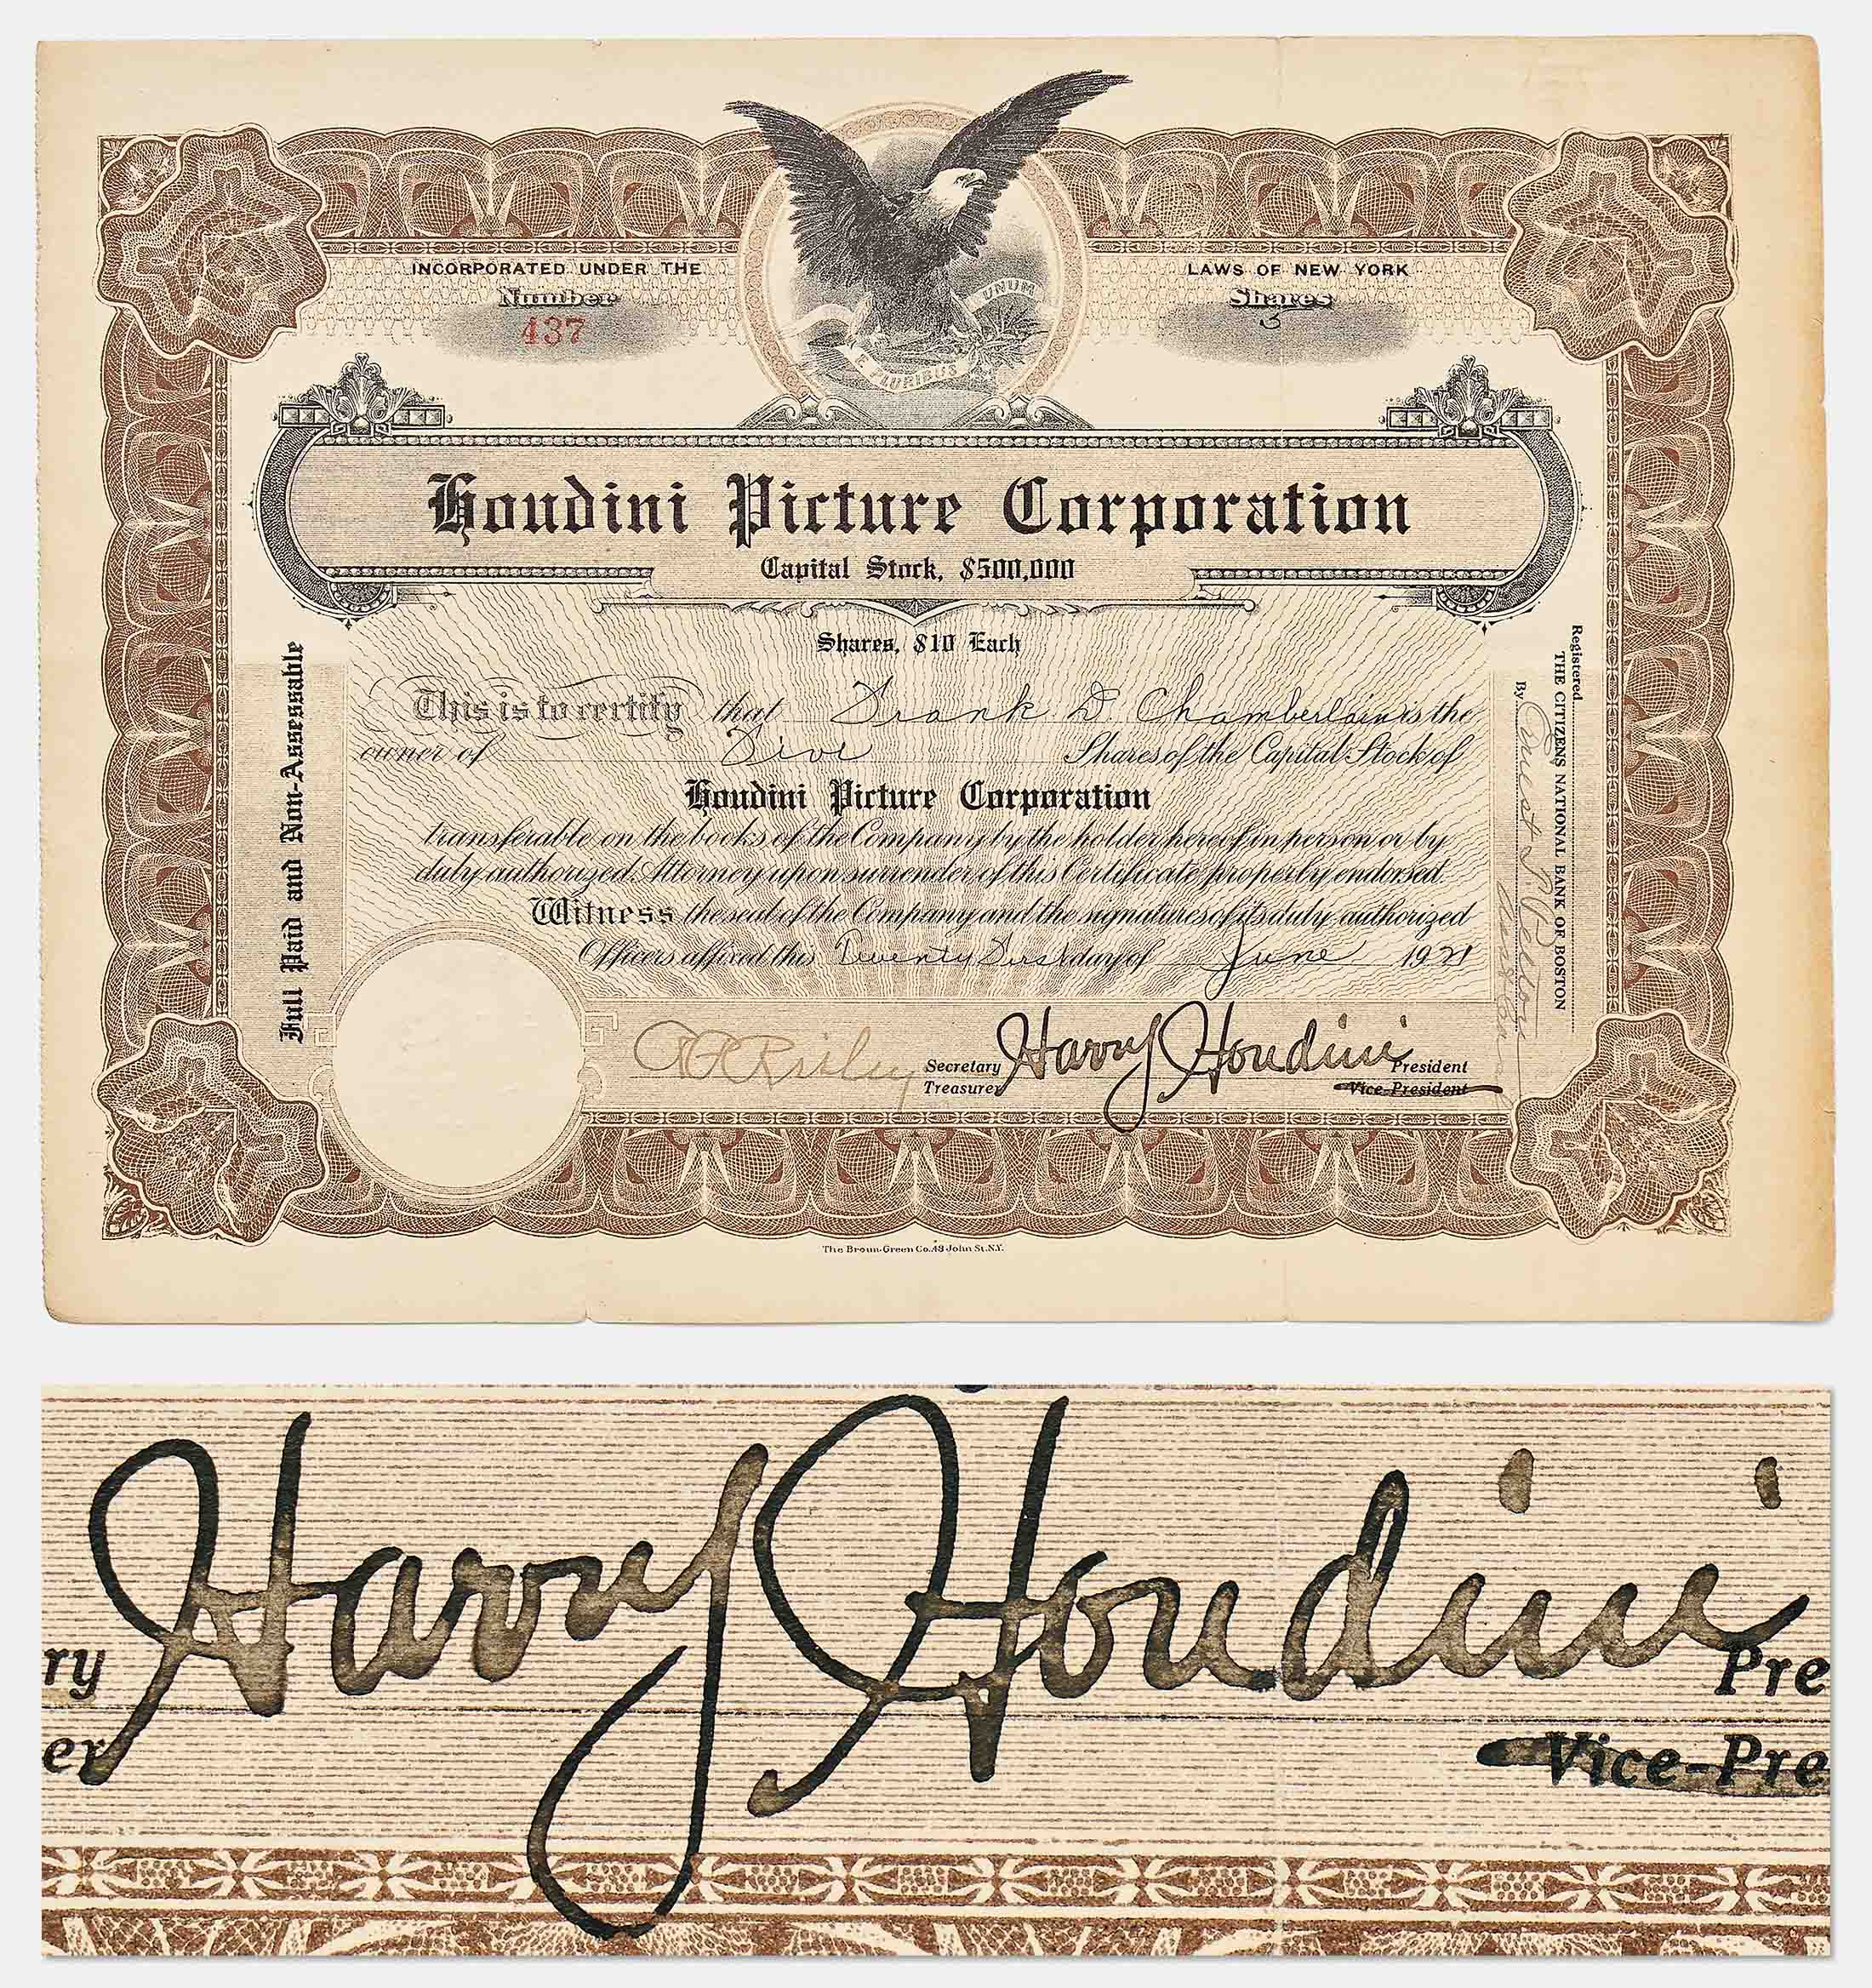 INCORPORATED UNDER THE
LAWS OF NEW YORK
Number
437
Shares
5
E PLURIBUS UNUM
Houdini Picture Corporation
Capital Stock, $500,000
Shares, $10 Each
Full Paid and Non-Assessable
This is to certify that Frank D. Chamberlain is the
owner of Five Shares of the Capital Stock of
Houdini Picture Corporation
transferable on the books of the Company by the holder hereof in person or by
duly authorized Attorney upon surrender of this Certificate properly endorsed.
Witness the seal of the Company and the signatures of its duly authorized
Officers affixed this Twenty First day of June 1921
Secretary
Treasurer
Harry Houdini
President
Vice-President
Registered
THE CITIZENS NATIONAL BANK OF BOSTON
By
The Broun-Green Co. 48 John St. N.Y.
ry
er
Harry Houdini
Pre
Vice-Pre